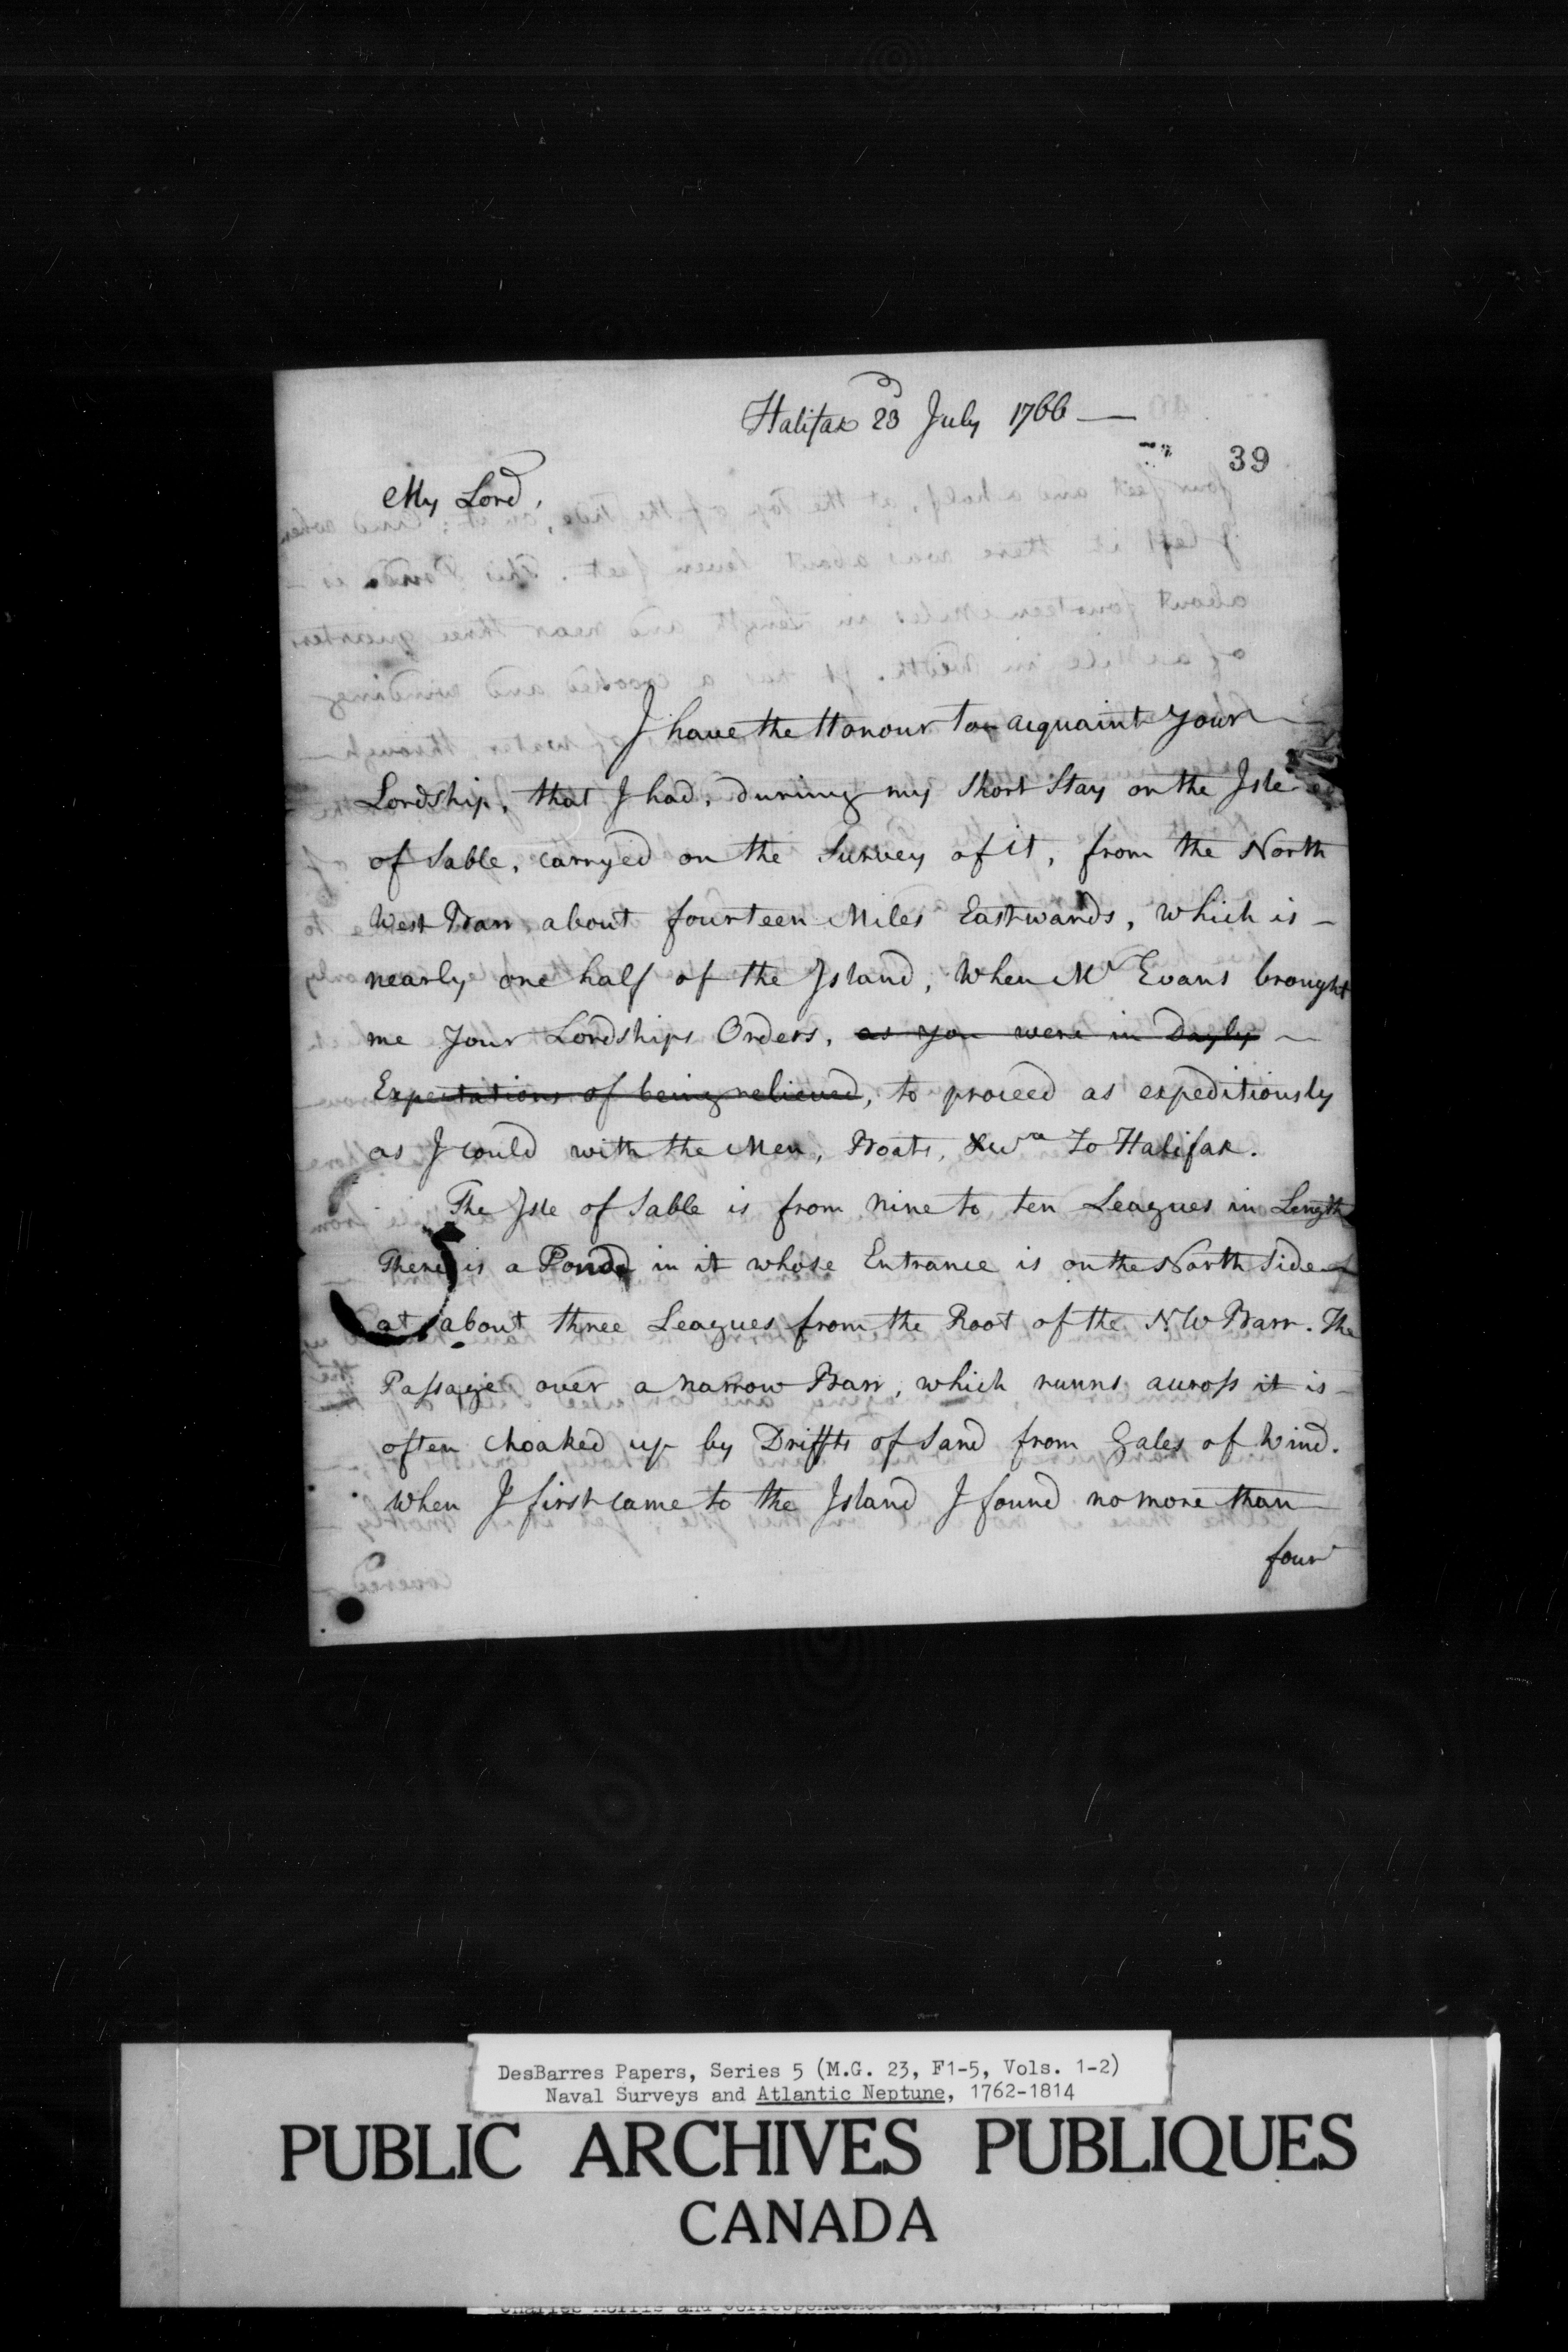 Halifax 23d July 1766 —
39
My Lord,
I have the Honour to acquaint your
Lordship, that I had, during my Short Stay on the Isle
of Sable, carryed on the Survey of it, from the North
West Barr about fourteen Miles Eastwards, which is —
nearly one half of the Island, when Mr Evans brought
me your Lordships Orders, as you were in Dayly —
Expectations of being relieved, to proceed as expeditiously
as I could with the Men, Boats, &ca to Halifax.
The Isle of Sable is from nine to ten Leagues in Length
There is a Pond in it whose Entrance is on the North Side
at about three Leagues from the Root of the N.W Barr. The
Passage over a narrow Barr, which runns across it is —
often choaked up by Driffts of Sand from Gales of Wind.
When I first came to the Island I found no more than
four
DesBarres Papers, Series 5 (M.G. 23, F1-5, Vols. 1-2)
Naval Surveys and Atlantic Neptune, 1762-1814
PUBLIC ARCHIVES PUBLIQUES
CANADA